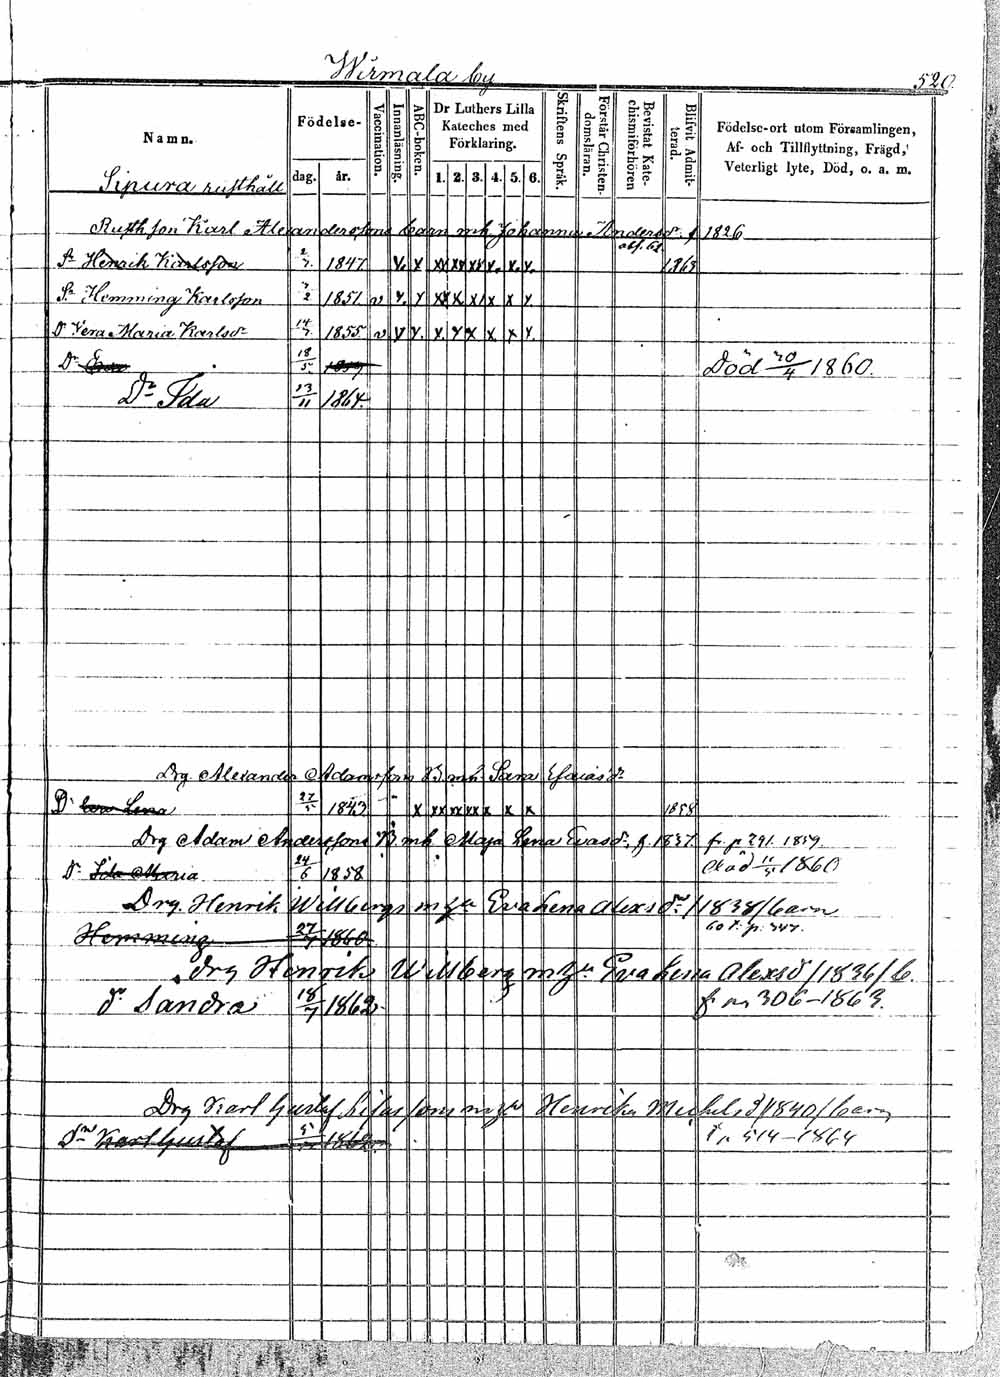 Wirmala by
520.
Namn.
Födelse-
dag.
år.
Vaccination.
Innanläsning.
ABC-boken.
Dr Luthers Lilla
Kateches med
Förklaring.
1. 2. 3. 4. 5. 6.
Skriftens Språk.
Förstår Christen-
domsläran.
Bevistat Kate-
chismiförhören
Blifvit Admit-
terad.
Födelse-ort utom Församlingen,
Af- och Tillflyttning, Frägd,
Veterligt lyte, Död, o. a. m.
Sipura rusthåll
Rusth son Karl Alexanderssons barn mh Johanna Andersdr f 1826
Sn Henrik Karlsson 2/7 1847 x. x xx xx xx x. x. x. 1863
Sn Hemming Karlsson 7/2 1851 v x. x xx x x x x x.
Dr Vera Maria Karlsdr 14/7 1855 v x x. x. x x x x x.
Dr 18/5 1859 Död 20/4 1860.
Dr Ida 23/11 1864.
Drg Alexander Adamssons B mh Sara Esaiasdr
Dr Lena 27/5 1843 x xx xx xx x x x 1858
Drg Adam Anderssons B mh Maja Lena Evasdr, f. 1837. fr. p 291. 1859
Dr Ida Maria 24/6 1858 död 11/5 1860
Drg. Henrik Willbergs m hu Eva Lena Alexsdr f 1838 / barn
Hemming 27/7 1860. p. 347.
drg Henrik Willberg m hu Eva Lena Alexsd f 1836 / b.
dr Sandra 18/7 1862 fr 306–1863.
Drg Karl Gustaf m hu Henrika Michelsd f 1840 / barn
Karl Gustaf 1862 514–1864